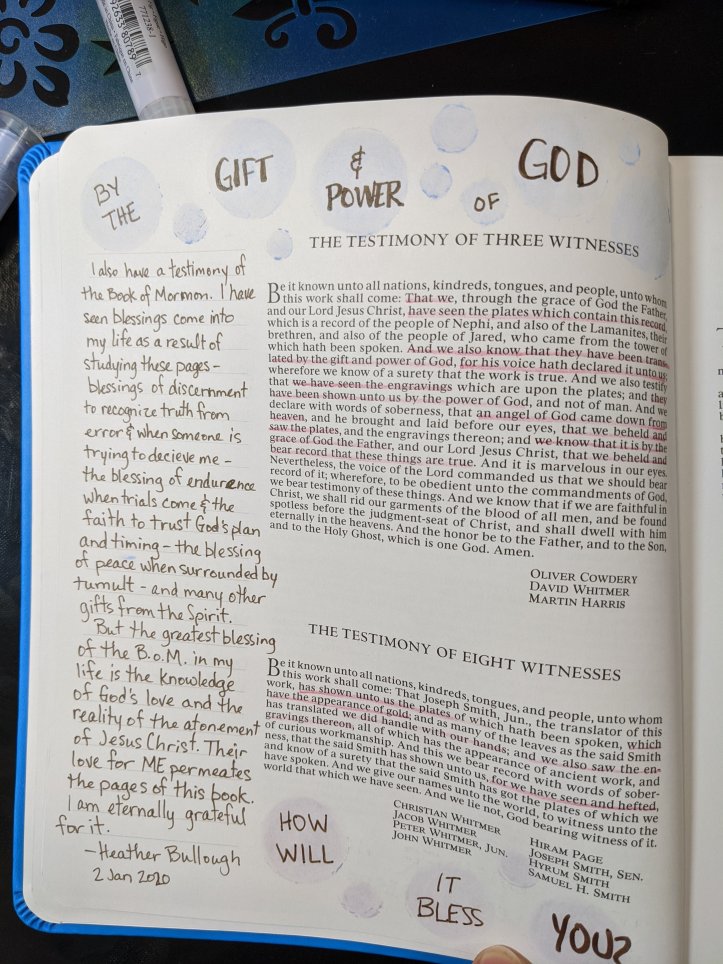 771238-1
92633 80789 7
BY
THE
GIFT
&
POWER
OF
GOD
I also have a testimony of
the Book of Mormon. I have
seen blessings come into
my life as a result of
studying these pages -
blessings of discernment
to recognize truth from
error & when someone is
trying to decieve me -
the blessing of endurence
when trials come & the
faith to trust God's plan
and timing - the blessing
of peace when surrounded by
tumult - and many other
gifts from the Spirit.
But the greatest blessing
of the B.o.M. in my
life is the knowledge
of God's love and the
reality of the atonement
of Jesus Christ. Their
love for ME permeates
the pages of this book.
I am eternally grateful
for it.
-Heather Bullough
2 Jan 2020
THE TESTIMONY OF THREE WITNESSES
Be it known unto all nations, kindreds, tongues, and people, unto whom
this work shall come: That we, through the grace of God the Father,
and our Lord Jesus Christ, have seen the plates which contain this record,
which is a record of the people of Nephi, and also of the Lamanites, their
brethren, and also of the people of Jared, who came from the tower of
which hath been spoken. And we also know that they have been trans-
lated by the gift and power of God, for his voice hath declared it unto us;
wherefore we know of a surety that the work is true. And we also testify
that we have seen the engravings which are upon the plates; and they
have been shown unto us by the power of God, and not of man. And we
declare with words of soberness, that an angel of God came down from
heaven, and he brought and laid before our eyes, that we beheld and
saw the plates, and the engravings thereon; and we know that it is by the
grace of God the Father, and our Lord Jesus Christ, that we beheld and
bear record that these things are true. And it is marvelous in our eyes.
Nevertheless, the voice of the Lord commanded us that we should bear
record of it; wherefore, to be obedient unto the commandments of God,
we bear testimony of these things. And we know that if we are faithful in
Christ, we shall rid our garments of the blood of all men, and be found
spotless before the judgment-seat of Christ, and shall dwell with him
eternally in the heavens. And the honor be to the Father, and to the Son,
and to the Holy Ghost, which is one God. Amen.
OLIVER COWDERY
DAVID WHITMER
MARTIN HARRIS
THE TESTIMONY OF EIGHT WITNESSES
Be it known unto all nations, kindreds, tongues, and people, unto whom
this work shall come: That Joseph Smith, Jun., the translator of this
work, has shown unto us the plates of which hath been spoken, which
have the appearance of gold; and as many of the leaves as the said Smith
has translated we did handle with our hands; and we also saw the en-
gravings thereon, all of which has the appearance of ancient work, and
of curious workmanship. And this we bear record with words of sober-
ness, that the said Smith has shown unto us, for we have seen and hefted,
and know of a surety that the said Smith has got the plates of which we
have spoken. And we give our names unto the world, to witness unto the
world that which we have seen. And we lie not, God bearing witness of it.
CHRISTIAN WHITMER
JACOB WHITMER
PETER WHITMER, JUN.
JOHN WHITMER
HIRAM PAGE
JOSEPH SMITH, SEN.
HYRUM SMITH
SAMUEL H. SMITH
HOW
WILL
IT
BLESS
YOU?